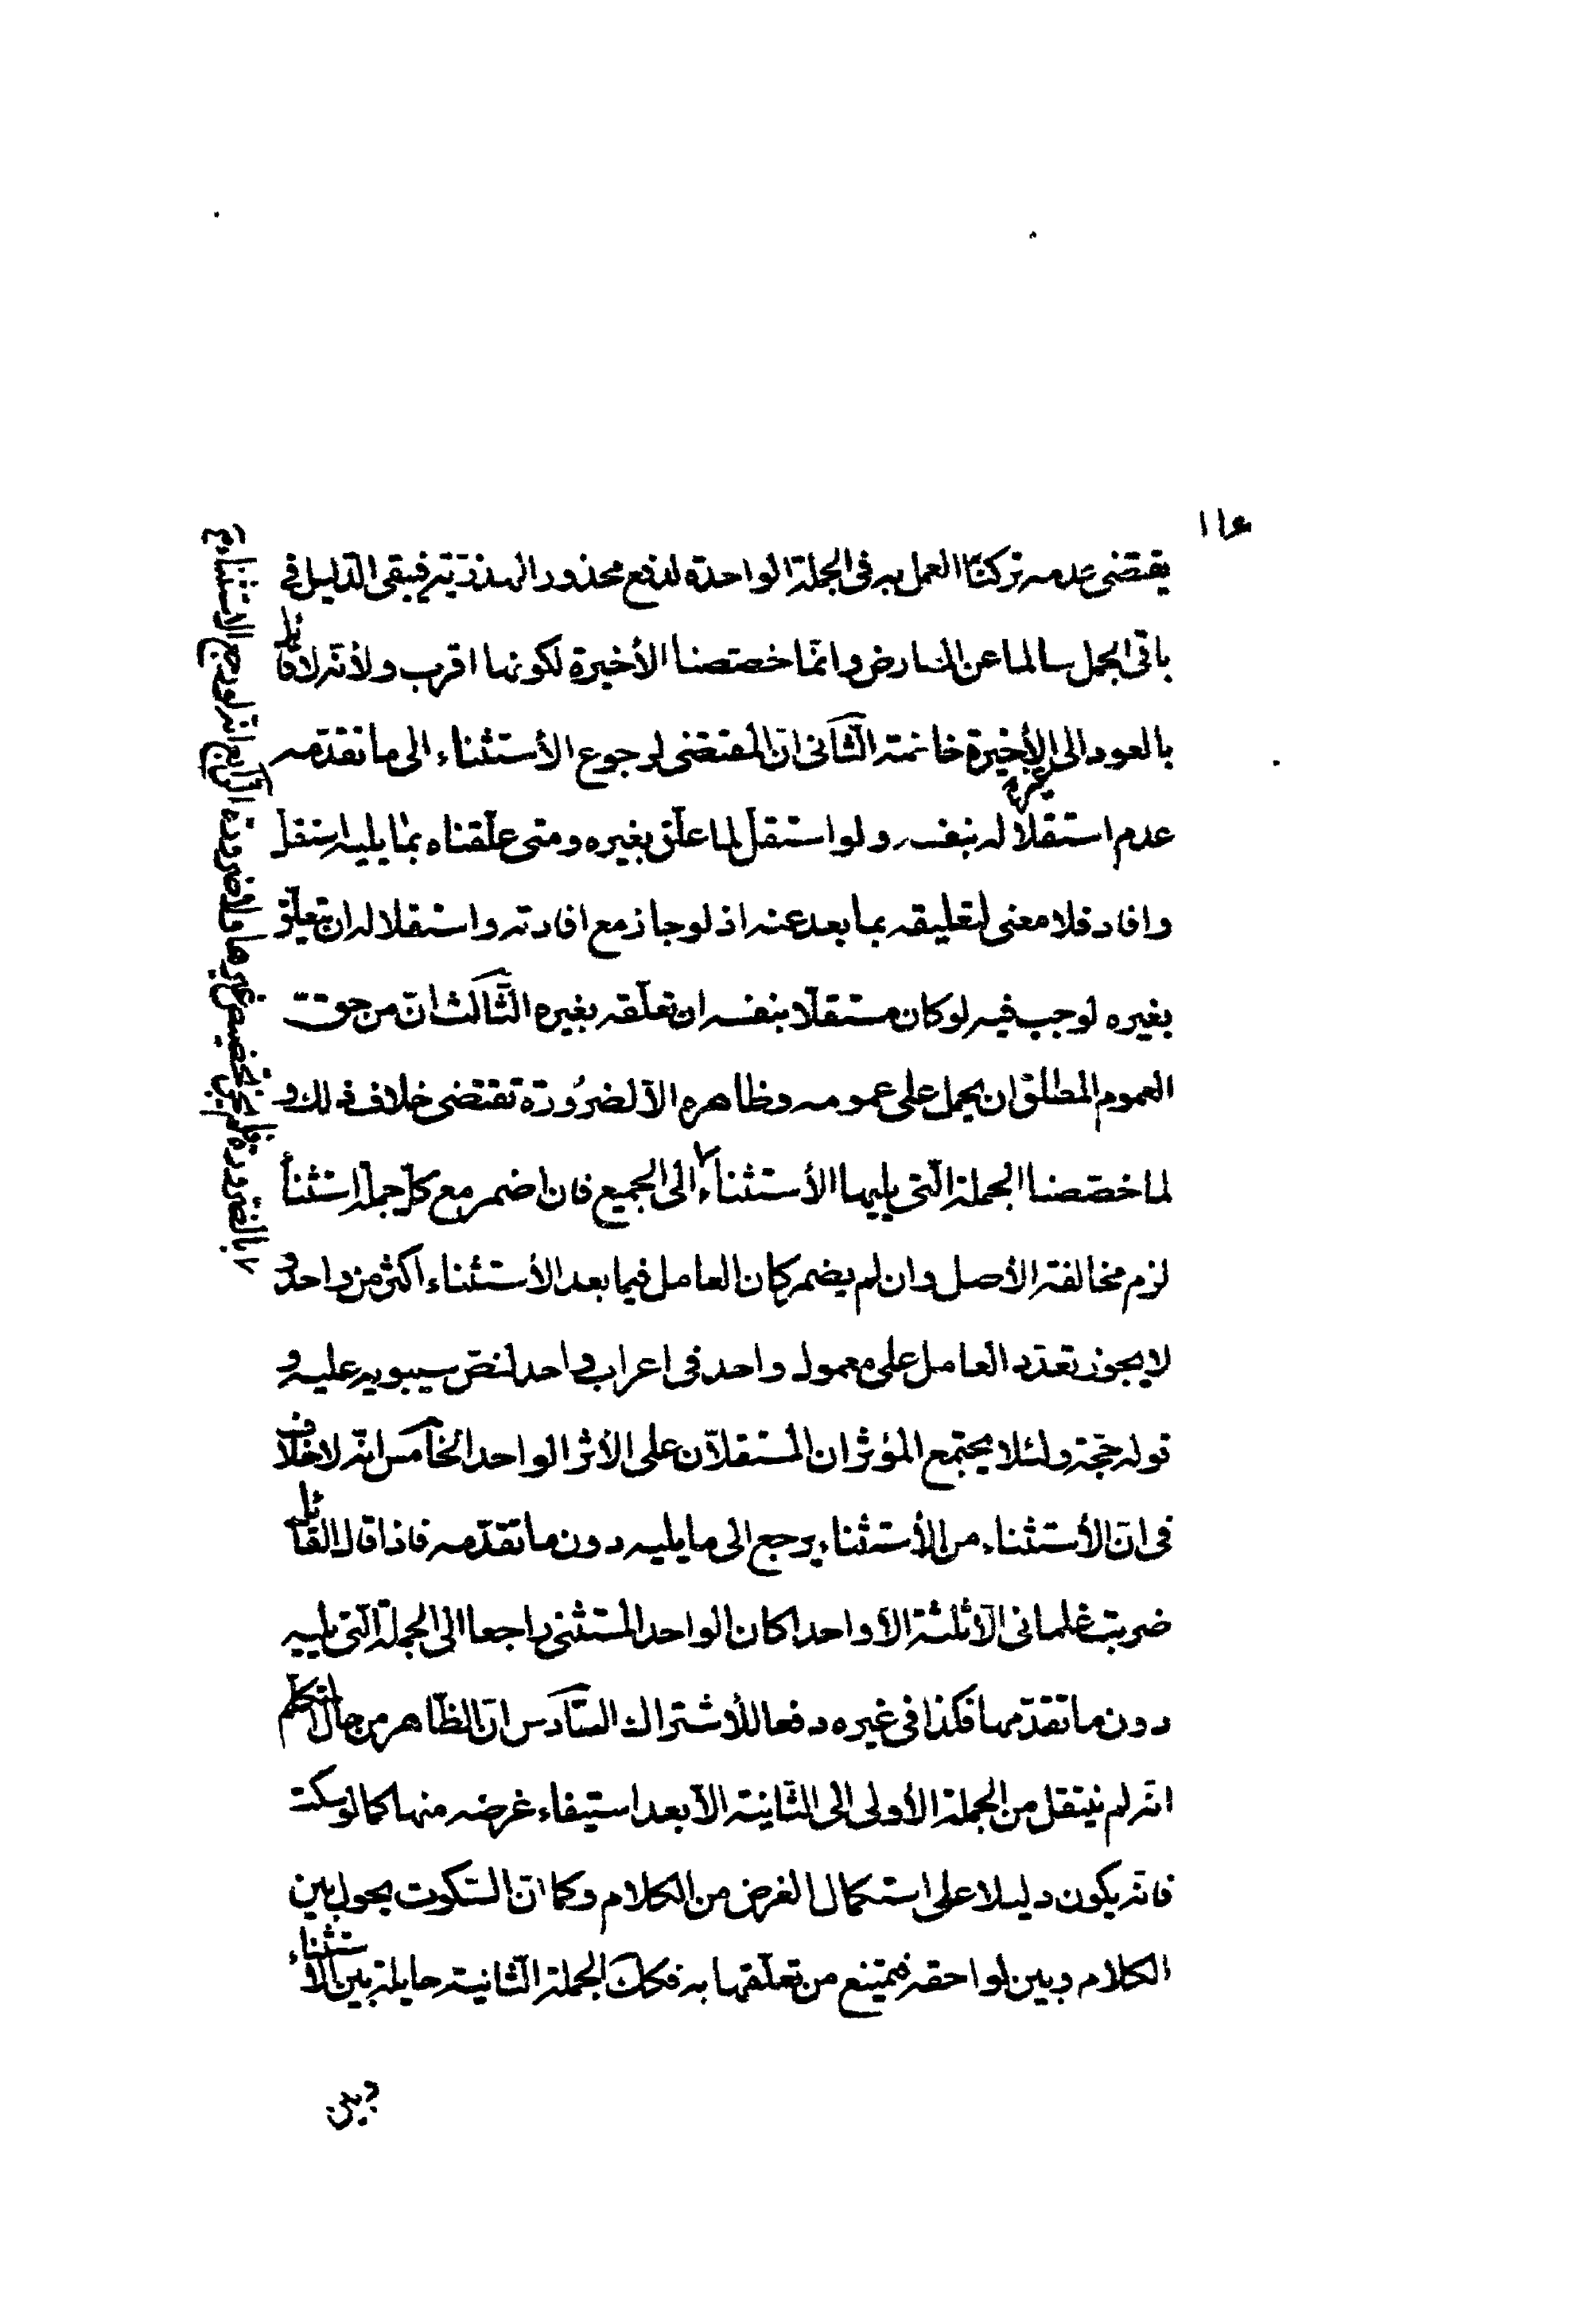 ١١٤
يقتضى عدمه تركنا العمل به فى الجملة الواحدة لدفع محذور الهذرية فيبقى الدّليل فى
باقى الجمل سالما عن المعارض وانّما خصّصنا الأخيرة لكونها اقرب ولأنّه لا قائل
بالعود الى غير الأخيرة خاتمته الثّانى انّ المقتضى لرجوع الأستثناء الى ما تقدّمه
عدم استقلاله بنفسه ولو استقلّ لما علّق بغيره ومتى علّقناه بما يليه استقلّ
وافاد فلا معنى لتعليقه بما بعد عنه اذ لو جاز مع افادته واستقلاله ان يتعلّق
بغيره لوجب فيه لو كان مستقلّا بنفسه ان تعلّقه بغيره الثّالث انّ من حقّ
العموم المطلق ان يحمل على عمومه وظاهره الّا لضرورة تقتضى خلاف ذلك و
لما خصّصنا الجملة الّتى يليها الأستثناء ٧ الى الجميع فان اضمر مع كلّ جملة استثناء
لزم مخالفة الأصل وان لم يضمر كان العامل فيما بعد الأستثناء اكثر من واحد و
لا يجوز تعدّد العامل على معمول واحد فى اعراب واحد لنصّ سيبويه عليه و
قوله حجّة ولئلا يجتمع المؤثران المستقلّان على الأثر الواحد الخامس انّه لا خلاف
فى انّ الأستثناء من الأستثناء يرجع الى ما يليه دون ما تقدّمه فاذا قال القائل
ضربت غلمانى الّا ثلثة الّا واحدا كان الواحد المستثنى راجعا الى الجملة الّتى يليه
دون ما تقدّمها فكذا فى غيره دفعا للأشتراك السّادس انّ الظّاهر من حال المتكلّم
انّه لم ينتقل من الجملة الأولى الى الثّانية الّا بعد استيفاء غرضه منها كما لو سكت
فانّه يكون دليلا على استكمال الغرض من الكلام وكما انّ السّكوت يحول بين
الكلام وبين لواحقه فيمتنع من تعلّقها به فكذلك الجملة الثّانية حايلة بين الأستثناء
وبين
٧ بالضرورة فلم يجز تخصيص غيرها ولا ضرورة الرّابع انّه لو رجع الاستثناء